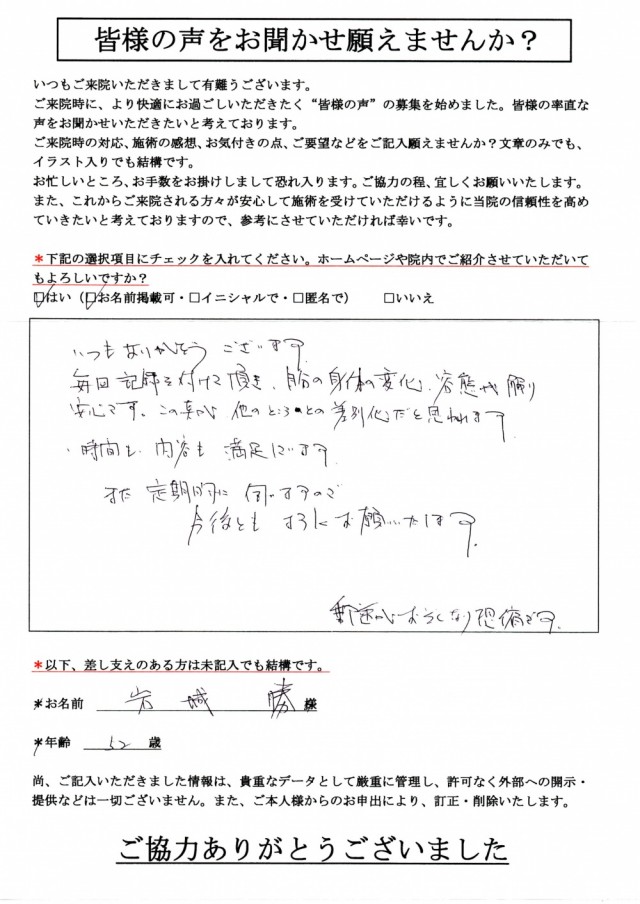 皆様の声をお聞かせ願えませんか？
いつもご来院いただきまして有難うございます。
ご来院時に、より快適にお過ごしいただきたく“皆様の声”の募集を始めました。皆様の率直な
声をお聞かせいただきたいと考えております。
ご来院時の対応、施術の感想、お気付きの点、ご要望などをご記入願えませんか？文章のみでも、
イラスト入りでも結構です。
お忙しいところ、お手数をお掛けしまして恐れ入ります。ご協力の程、宜しくお願いいたします。
また、これからご来院される方々が安心して施術を受けていただけるように当院の信頼性を高め
ていきたいと考えておりますので、参考にさせていただければ幸いです。
＊下記の選択項目にチェックを入れてください。ホームページや院内でご紹介させていただいて
もよろしいですか？
☑はい（☑お名前掲載可・□イニシャルで・□匿名で）　□いいえ
いつもありがとうございます。
毎回記録を付けて頂き、自分の身体の変化、容態が解り
安心です。この真心 他のところとの差別化だと思われます。
・時間も 内容も 満足です。
また 定期的に 伺いますので
今後とも よろしくお願いいたします。
郵送がおそくなり恐縮です。
＊以下、差し支えのある方は未記入でも結構です。
＊お名前　岩城　勝　様
＊年齢　52　歳
尚、ご記入いただきました情報は、貴重なデータとして厳重に管理し、許可なく外部への開示・
提供などは一切ございません。また、ご本人様からのお申出により、訂正・削除いたします。
ご協力ありがとうございました